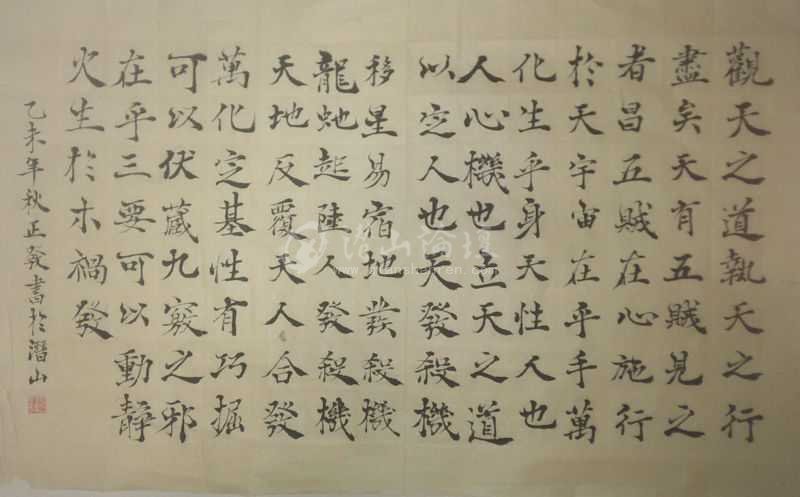 觀天之道執天之行
盡矣天有五賊見之
者昌五賊在心施行
於天宇宙在乎手萬
化生乎身天性人也
人心機也立天之道
以定人也天發殺機
移星易宿地發殺機
龍虵起陸人發殺機
天地反覆天人合發
萬化定基性有巧掘
可以伏藏九竅之邪
在乎三要可以動靜
火生於木禍發
乙未年秋正發書於潛山
潜山论坛
www.qianshanren.com